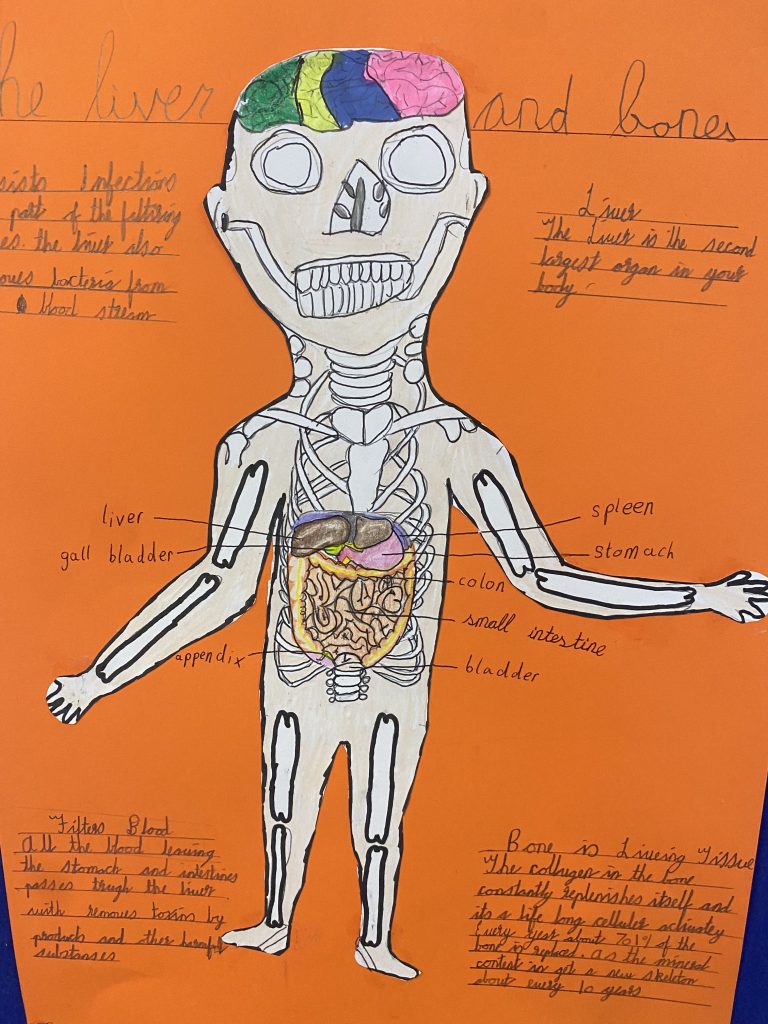 he liver and bones
sists Infections
part of the filtering
es. the liver also
oves bacteria from
blood stream
Liver
The Liver is the second
largest organ in your
body.
liver
gall bladder
appendix
spleen
stomach
colon
small intestine
bladder
Filters Blood
All the blood leaving
the stomach and intestines
passes trugh the liver
with removes toxins by
products and ther harmful
substanses
Bone is Liveing Tissue
The collagen in the bone
constantly replenishes itself and
its a life long celluler activatey
Every year about of the
bone is replaced. as the mineral
content in get a new skeleton
about every 10 years